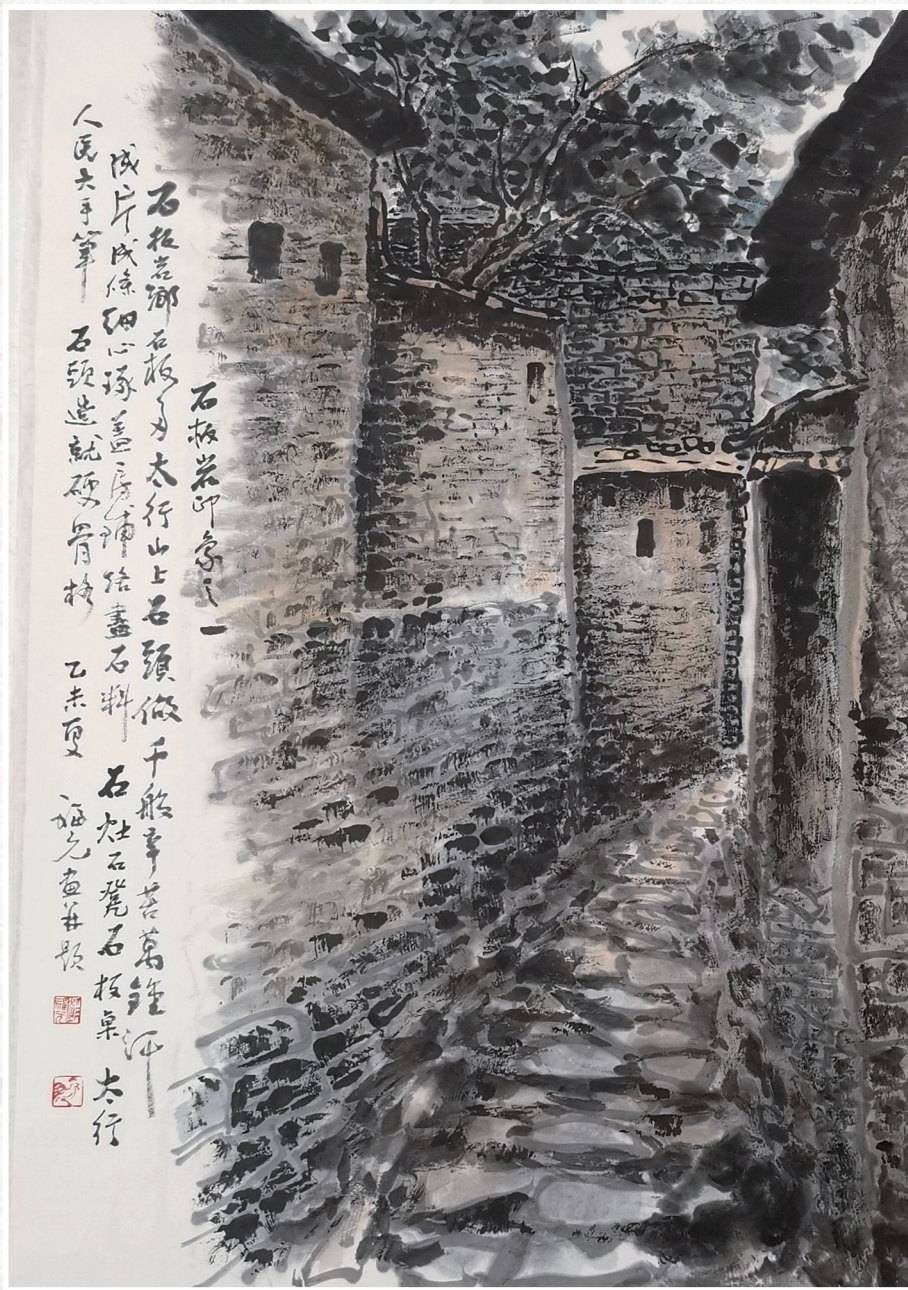 石板岩印象之一
石板岩鄉石板多太行山上石頭做千般辛苦萬錘汗
成片成條細心琢蓋房鋪路盡石料石灶石凳石板桌太行
人民大手筆石頭造就硬骨格乙未夏福元画并题